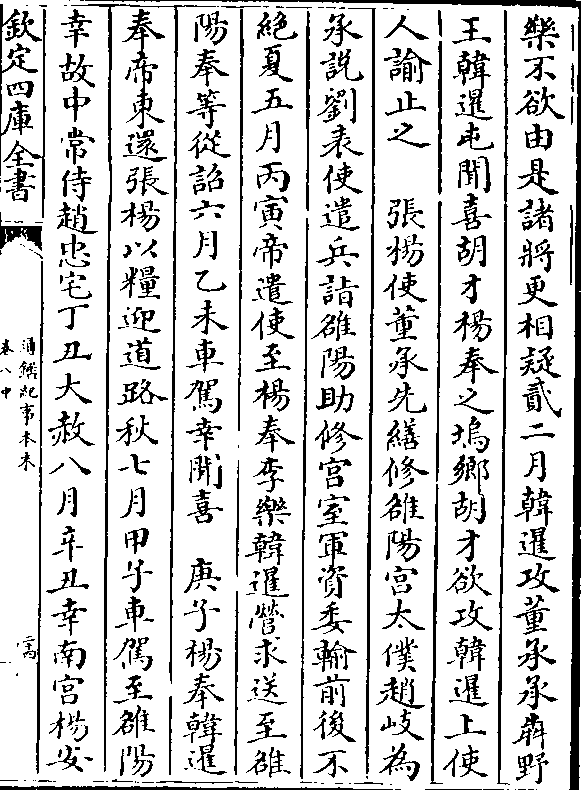 樂不欲由是諸將更相疑貳二月韓暹攻董承承犇野
王韓暹屯聞喜胡才楊奉之塢鄉胡才欲攻韓暹上使
人諭止之　張楊使董承先繕修雒陽宮太僕趙岐為
承說劉表使遣兵詣雒陽助修宮室軍資委輸前後不
絕夏五月丙寅帝遣使至楊奉李樂韓暹營求送至雒
陽奉等從詔六月乙未車駕幸聞喜　庚子楊奉韓暹
奉帝東還張楊以糧迎道路秋七月甲子車駕至雒陽
幸故中常侍趙忠宅丁丑大赦八月辛丑幸南宮楊安
欽定四庫全書
通鑑紀事本末
卷八中